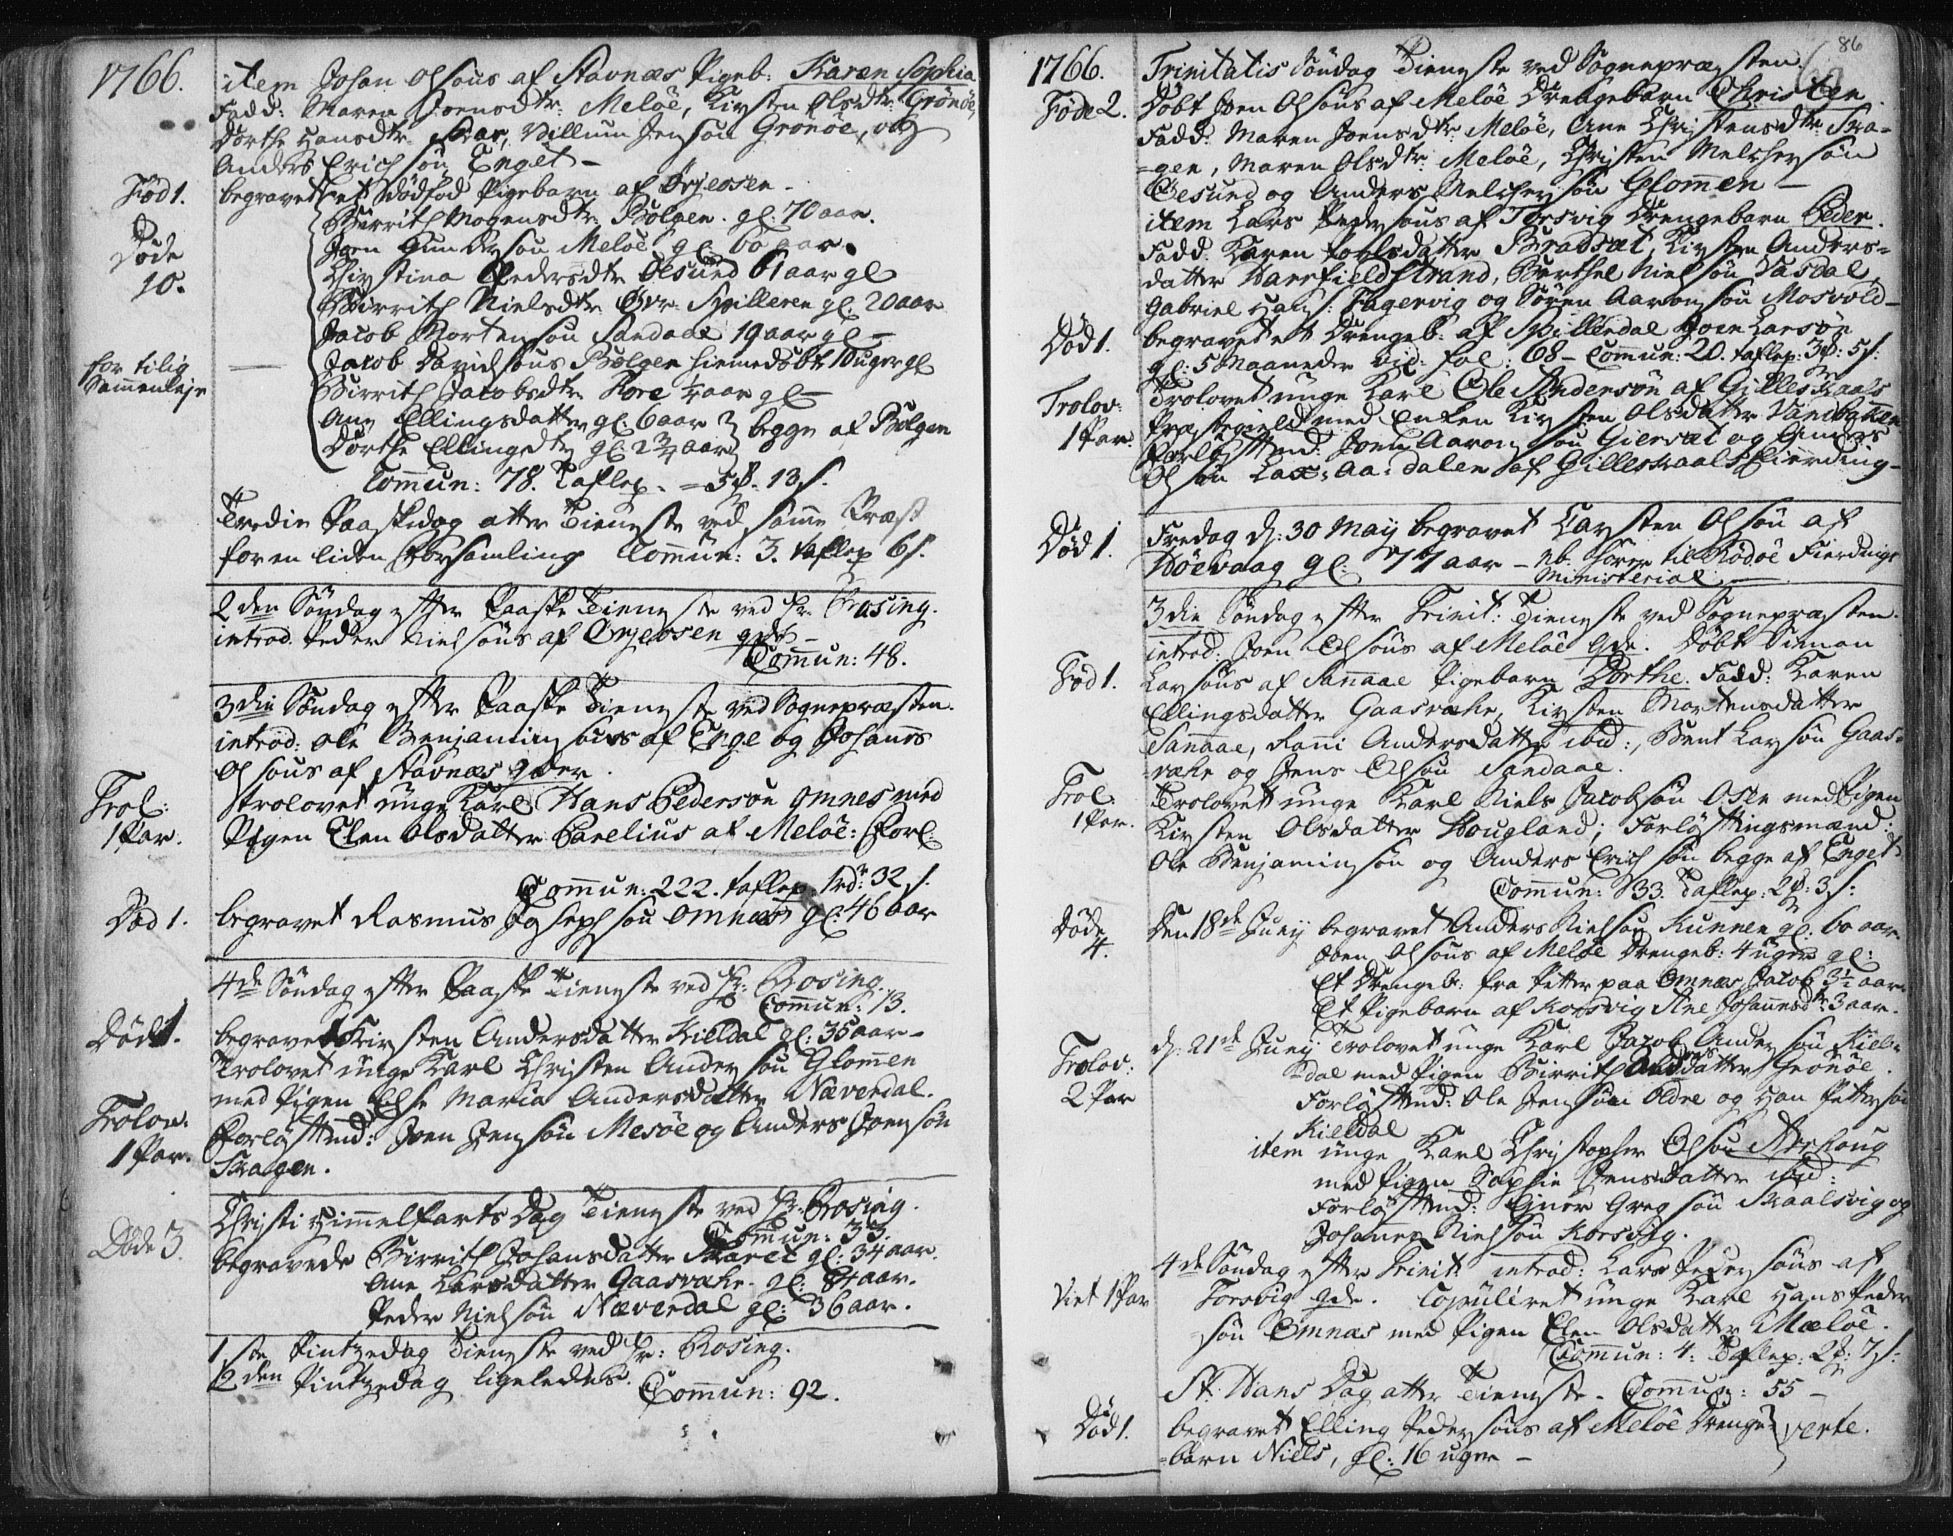 1766.
item Johan Olsöns af Stavnæs Pigeb: Karen Sophia.
Fadd: Maren Joensdtr: Melöe, Kirsten Olsdtr: Grönöe,
Dorthe Hansdtr Skar, Villum Jensön Grönöe, og
Anders Erichsön Enget –
Fød 1.
begravet et dödfød Pigebarn af Örjeosen –
Birrith Mogensdtr Bolgen. gl: 70 aar.
Døde
10.
Joen Gundersön Melöe gl: 60 aar.
Christina Pedersdtr Øesund 61 aar gl
Birrith Nielsdtr Øvr Spilleren gl: 20 aar
Jacob Mortensön Sandaae 19 aar gl –
for tilig
Sammenleje
Jacob Davidsöns Bolgen hiemedöbt 10 uger gl
Birrith Jacobsdtr Pore 1/4 aar gl –
Ane Ellingsdatter gl: 6 aar
Dorthe Ellingsdtr gl: 2 3/4 aar } begge af Bolgen
Commun: 78. Taflep. – 5 . 13 s.
Tredie Paaskedag atter Tieneste ved samme Præst
for en liden Forsamling Commun: 3. taflep 6 s.
2den Söndag efter Paaske Tieneste ved Hr. Rosing.
introd. Peder Nielsöns af Örjeosen qde –
Commun: 48.
3die Söndag efter Paaske Tieneste ved Sognepræsten.
introd: Ole Benjaminsöns af Enge og Johannes
Olsöns af Stavnæs qder.
Trol:
1 Par.
trolovet unge Karl Hans Pedersön Omnes med
Pigen Elen Olsdatter Parelius af Melöe: Forl:
Commun: 222. taflep. 1 rdr: 32 s.
Död 1.
begravet Rasmus Josephsön Omnæs gl: 46 aar
4de Söndag efter Paaske Tieneste ved Hr. Rosing.
Commun: 13.
Död 1.
begravet Kirsten Andersdatter Kieldal gl: 35 aar –
Trolovet unge Karl Christen Andersön Glomen
Trolov.
1 Par.
med Pigen Else Maria Andersdatter Næverdal.
Forlöftmd: Joen Jensön Mesöe og Anders Joensön
Skagen.
Christi Himmelfarts Dag Tieneste ved Hr. Rosing.
Commun: 33.
Døde 3.
begravede Birrith Johansdatter Skaret gl: 34 aar.
Ane Larsdatter Gaasvahr. gl: 84 aar.
Peder Nielsön Næverdal gl: 36 aar.
1ste Pintzedag Tieneste ved Hr: Rosing.
2den Pintzedag ligeledes. Commun: 92.
86
1766.
Trinitatis Söndag Tieneste ved Sognepræsten
Føde 2.
Döbt Joen Olsöns af Melöe Drengebarn Christen.
Fadd: Maren Joensdtr: Melöe, Ane Christensdtr: Ska-
-gen, Maren Olsdtr: Melöe, Christen Melchersön
Øesund og Anders Melchersön Glomen –
item Lars Pedersöns af Torsvig Drengebarn Peder.
Fadd: Karen Povlsdatter Bradsæt, Kirsten Anders-
datter Harrfieldstrand, Barthel Nielsön Vasdal,
Gabriel Hans: Fagervig og Sören Aaronsön Mosvold –
Död 1.
begravet et Drengeb: af Spilderdal Joen Larsön
gl: 5 Maaneder vid: fol: 68 – Commun: 20. taflep: 3 : 5 s.
Trolov:
1 Par.
Trolovet unge Karl Ole Andersön af Gilleskaals
Præstegield med Enken Kirsten Olsdatter Vandbakken
Forlöftmd: Joen Aaronsön Giersæt og Anders
Olsön Lax: aa: dalen af Gilleskaals Fierding –
Död 1.
Fredag d: 30 Maij begravet Carsten Olsön af
Höevaag gl: 77 aar – nb. hörer til Rödöe Fierdings
Ministerial. –
3die Söndag efter Trinit: Tieneste ved Sognepræsten.
introd: Joen Olsöns af Melöe qde. Döbt Simon
Fød 1.
Larsöns af Sanaae Pigebarn Dorthe. Fadd: Karen
Ellingsdatter Gaasvahr, Kirsten Mortensdatter
Sanaae, Ranni Andersdatter ibid:, Bent Larsön Gaas-
-vahr og Jens Olsön Sandaae.
Trol:
1 Par.
Trolovet unge Karl Niels Jacobsön Osen med Pigen
Kirsten Olsdatter Hougland; Forlöftingsmænd:
Ole Benjaminsön og Anders Erichsön begge af Enget
Commun: 133. Taflep: 2 : 3 s:
Døde
4.
Den 18de Junij begravet Anders Nielsön Kunnen gl: 60 aar.
Joen Olsöns af Melöe Drengeb: 4 uger gl:
Et Drengeb: fra Petter paa Omnæs Jacob 3 1/2 aar
Et Pigebarn af Korsvig Ane Johannesdtr: 3 aar.
Trolov:
2 Par
d: 21de Junij Trolovet unge Karl Jacob Andersön Kiel-
-dal med Pigen Birrith datter Grönöe.
Forlöftmd: Ole Jensön Oldre og Han Pettersön
Kieldal
item unge Karl Christopher Olsön Aarhoug
med Pigen Sophie Jensdatter ibid:
Forlöftmd: Ejner Gregsön Skaalsvig og
Johannes Nielsön Korsvig.
4de Söndag efter Trinit: introd: Lars Pedersöns af
Viet 1 Par
Torsvig qde. Copuleret unge Karl Hans Peder
sön Omnæs med Pigen Elen Olsdatter Mælöe.
Commun: 4: Taflep: 2 : 7 s:
St: Hans Dag atter Tieneste. Commun: 55 –
Död 1.
begravet Elling Pedersöns af Melöe Drenge-
-barn Niels, gl: 16 uger – } verte.